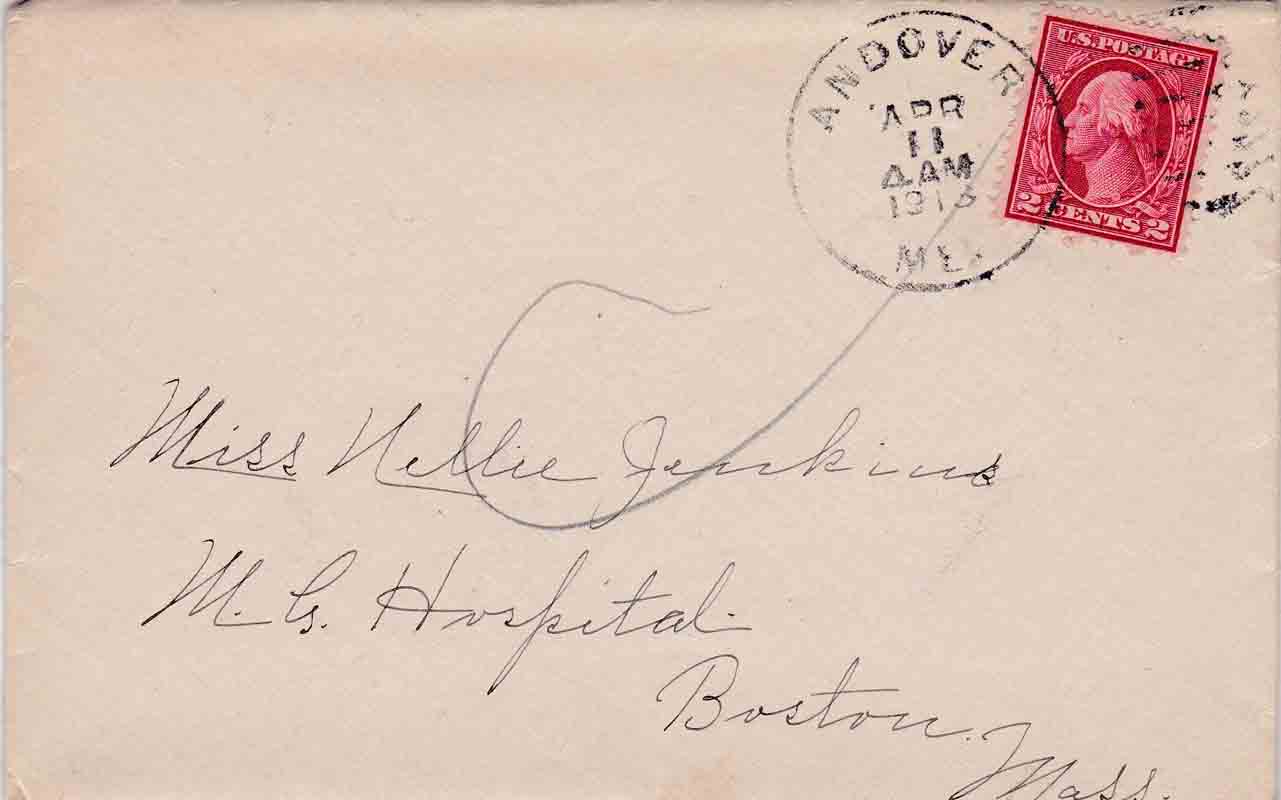 ANDOVER
APR
11
4 AM
1913
ME.
U.S. POSTAGE
2 CENTS 2
Miss Nellie Jenkins
M. G. Hospital.
Boston.
Mass.